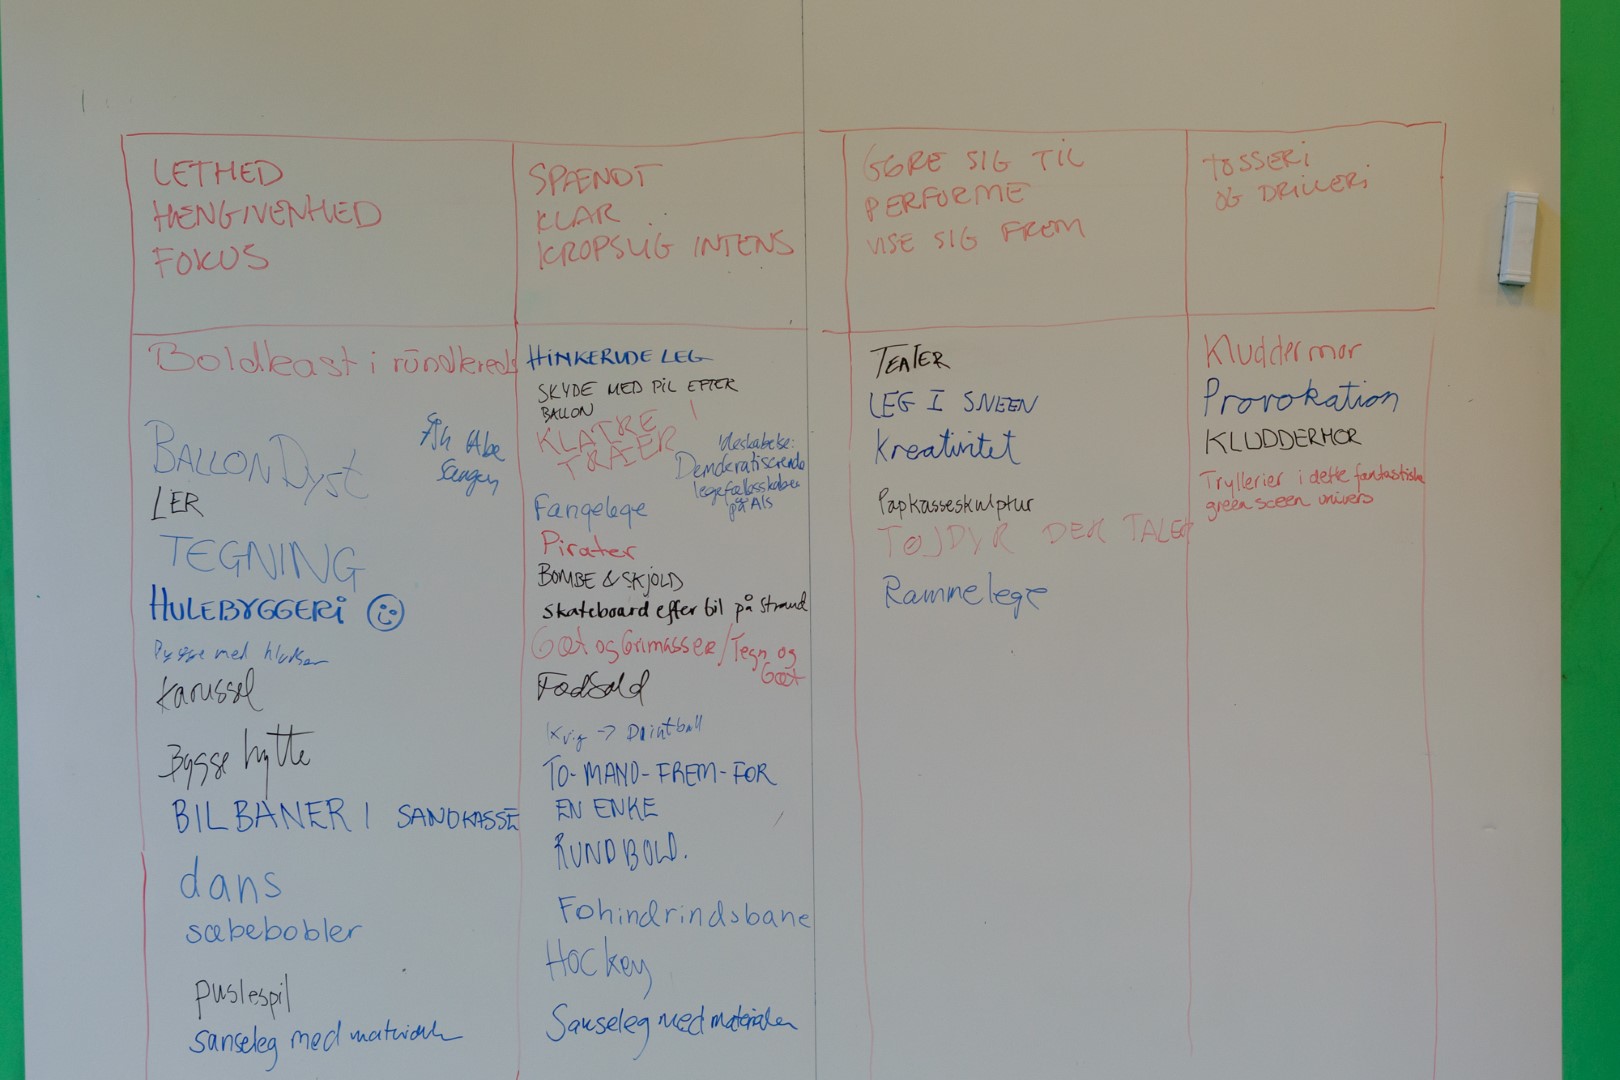 LETHED
HENGIVENHED
FOKUS
SPÆNDT
KLAR
KROPSLIG INTENS
GØRE SIG TIL
PERFORME
VISE SIG FREM
TOSSERi
OG DRILLERi
Boldkast i rundkreds
BALLON Dyst
Abe
Sangen
LER
TEGNING
HULEBYGGERi
Bygge med klodser
Karussel
Bygge hytte
BILBANER I SANDKASSE
dans
sæbebobler
puslespil
sanseleg med materialer
HiNKERUDE LEG
SKYDE MED PIL EFTER
BALLON
KLATRE I
TRÆER
Ideskabelse:
Demokratiserende
legefællesskaber
på Als
Fangelege
Pirater
BOMBE & SKJOLD
Skateboard efter bil på Strand
Gæt og Grimasser/Tegn og
Gæt
Fodbold
Krig -> Paintball
TO-MAND-FREM-FOR
EN ENKE
RUNDBOLD.
Fohindrindsbane
Hockey
Sanseleg med materialer
TEATER
LEG I SNEEN
Kreativitet
Papkasseskulptur
TØJDYR DER TALER
Rammelege
Kluddermor
Provokation
KLUDDERMOR
Tryllerier i dette fantastiske
green sceen univers